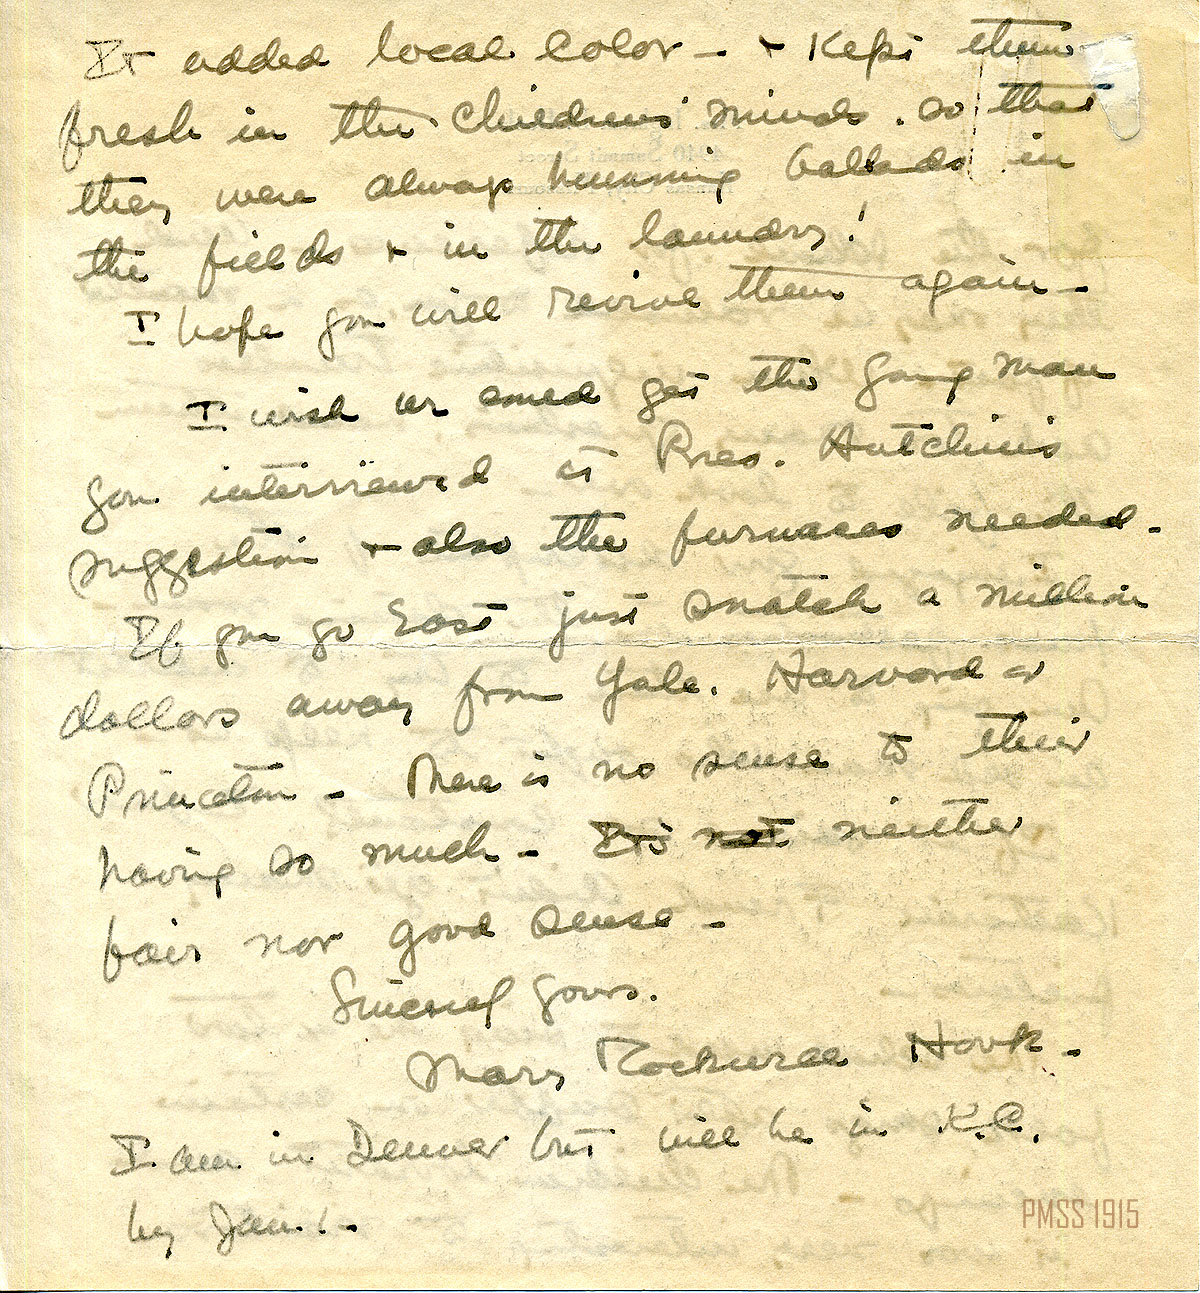 It added local color - + kept them
fresh in the childrens' minds. so that
they were always humming ballads in
the fields + in the laundry!
I hope you will revive them again -
I wish we could get the young man
you interviewed at Pres. Hutchins
suggestion + also the furnaces needed -
If you go East just snatch a million
dollars away from Yale. Harvard or
Princeton - There is no sense to their
having so much - It's not neither
fair nor good sense -
Sincerely yours.
Mary Rockwell Hook -
I am in Denver but will be in K.C.
by Jan. 1. -
PMSS 1915